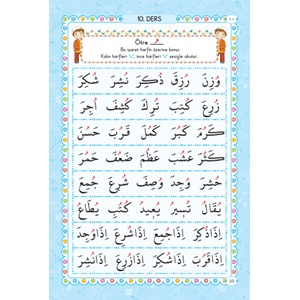 10. DERS
Ötre ـُـ
Bu işaret harfin üzerine konur.
Kalın harfleri "u", ince harfleri "ü" sesiyle okutur.
وُزِنَ رُزِقَ ذُكِرَ نُشِرَ شُكِرَ
زُرِعَ كُتِبَ تُرِكَ كُشِفَ اُجِرَ
كَرُمَ كَبُرَ كَمُلَ قَرُبَ حَسُنَ
كَثُرَ عَشُبَ عَظُمَ ضَعُفَ حَمُرَ
حُشِرَ وُجِدَ وُصِفَ شُرِعَ جُمِعَ
يُقَالُ نُسِيرُ يُعِيدُ يُطَاعُ
اِذَاذُكِرَ اِذَاجُمِعَ اِذَاشُرِعَ اِذَاوُجِدَ
اِذَاقُرِبَ اِذَاشُكِرَ اِذَازُرِعَ اِذَانُشِرَ
10